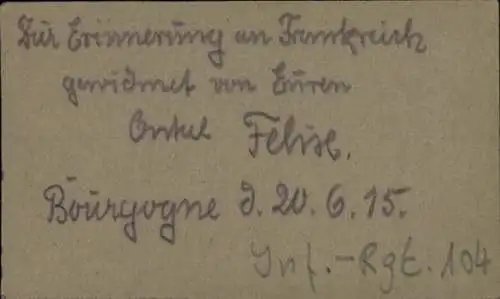 Zur Erinnerung an Frankreich
gewidmet von Euren
Onkel Felix.
Bourgogne d. 20. 6. 15.
Inf.-Rgt. 104